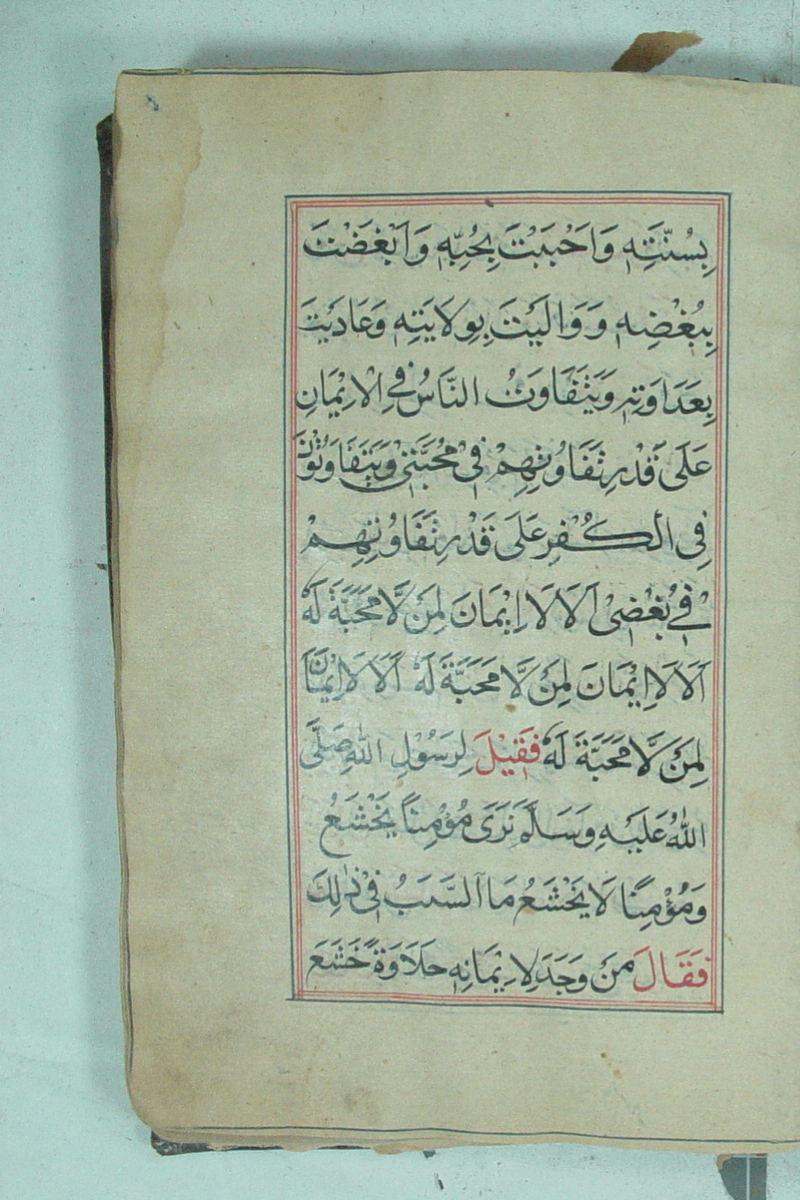 بِسُنَّتِهٖ وَاَحْبَبْتَ بِحُبِّهٖ وَاَبْغَضْتَ
بِبُغْضِهٖ وَوَالَيْتَ بِوِلَايَتِهٖ وَعَادَيْتَ
بِعَدَاوَتِهٖ وَيَتَفَاوَتُ النَّاسُ فِي الْاِيْمَانِ
عَلٰى قَدْرِ تَفَاوُتِهِمْ فِيْ مُحَبَّتِيْ وَيَتَفَاوَتُوْنَ
فِي الْكُفْرِ عَلٰى قَدْرِ تَفَاوُتِهِمْ
فِيْ بُغْضِيْ اَلَا لَا اِيْمَانَ لِمَنْ لَّا مَحَبَّةَ لَهٗ
اَلَا لَا اِيْمَانَ لِمَنْ لَّا مَحَبَّةَ لَهٗ اَلَا لَا اِيْمَانَ
لِمَنْ لَّا مَحَبَّةَ لَهٗ فَقِيْلَ لِرَسُوْلِ اللّٰهِ صَلَّى
اللّٰهُ عَلَيْهِ وَسَلَّمَ نَرٰى مُؤْمِنًا يَخْشَعُ
وَمُؤْمِنًا لَا يَخْشَعُ مَا السَّبَبُ فِيْ ذٰلِكَ
فَقَالَ مَنْ وَجَدَ لِاِيْمَانِهٖ حَلَاوَةً خَشَعَ